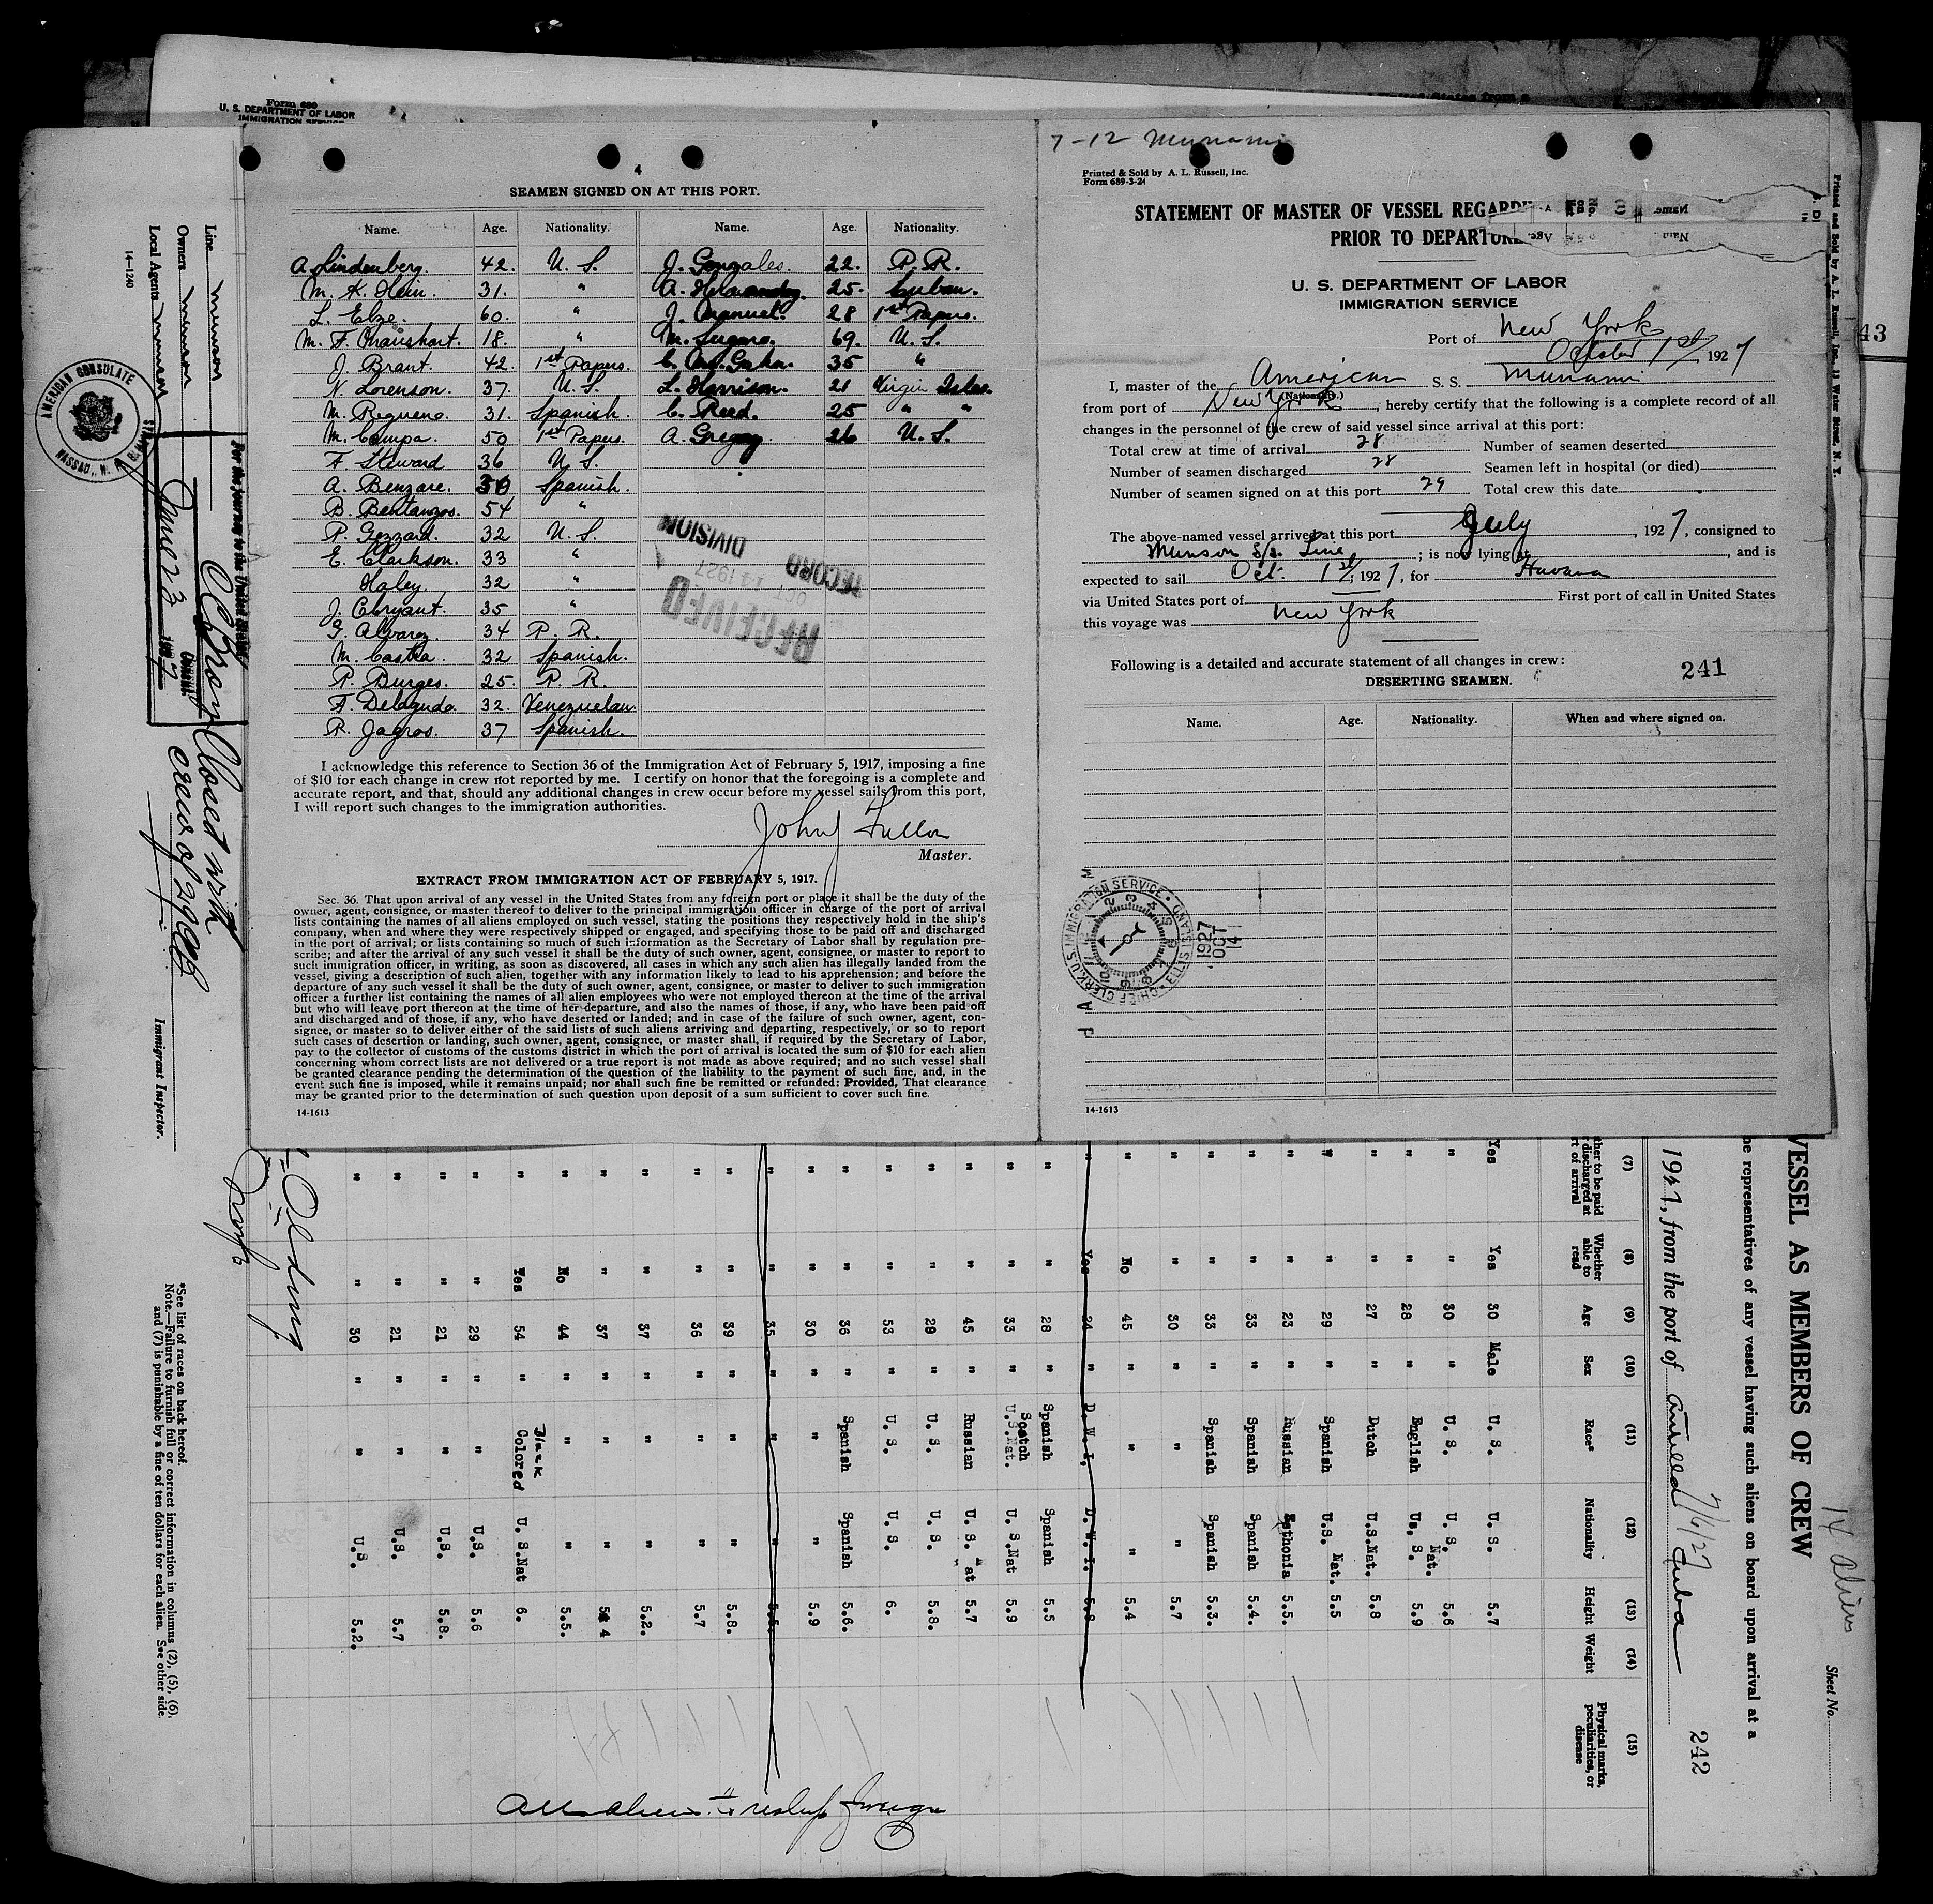 Form 689
U. S. DEPARTMENT OF LABOR
IMMIGRATION SERVICE
4
SEAMEN SIGNED ON AT THIS PORT.
Name. Age. Nationality. Name. Age. Nationality.
A. Lindenberg. 42. U. S. J. Gonzales. 22. P. R.
M. K. Hein. 31. " A. Hernandez. 25. Cuban.
L. Elze. 60. " J. Manuel. 28 1st Papers.
M. F. 18. " M. Lugaro. 69. U. S.
J. Brant. 42. 1st Papers. C. 35 "
N. Lorenson. 37. U. S. L. Harrison. 21 Virgin Isles.
M. Requeno. 31. Spanish. C. Reed. 25 " "
M. Campa. 50 1st Papers. A. Gregory. 26 U. S.
F. Steward 36 U. S.
A. Benzare. 30 Spanish.
B. Bentanzos. 54 "
P. Gezzard. 32 U. S.
E. Clarkson. 33 "
Haley. 32 "
J. Ebryant. 35 "
G. Alvarez. 34 P. R.
M. Castra. 32 Spanish.
P. Burges. 25. P. R.
F. Delagudo. 32. Venezuelan.
R. Jagros. 37 Spanish.
RECEIVED
OCT 14 1927
RECORD DIVISION
I acknowledge this reference to Section 36 of the Immigration Act of February 5, 1917, imposing a fine
of $10 for each change in crew not reported by me. I certify on honor that the foregoing is a complete and
accurate report, and that, should any additional changes in crew occur before my vessel sails from this port,
I will report such changes to the immigration authorities.
John J Fullon
Master.
EXTRACT FROM IMMIGRATION ACT OF FEBRUARY 5, 1917.
Sec. 36. That upon arrival of any vessel in the United States from any foreign port or place it shall be the duty of the
owner, agent, consignee, or master thereof to deliver to the principal immigration officer in charge of the port of arrival
lists containing the names of all aliens employed on such vessel, stating the positions they respectively hold in the ship's
company, when and where they were respectively shipped or engaged, and specifying those to be paid off and discharged
in the port of arrival; or lists containing so much of such information as the Secretary of Labor shall by regulation pre-
scribe; and after the arrival of any such vessel it shall be the duty of such owner, agent, consignee, or master to report to
such immigration officer, in writing, as soon as discovered, all cases in which any such alien has illegally landed from the
vessel, giving a description of such alien, together with any information likely to lead to his apprehension; and before the
departure of any such vessel it shall be the duty of such owner, agent, consignee, or master to deliver to such immigration
officer a further list containing the names of all alien employees who were not employed thereon at the time of the arrival
but who will leave port thereon at the time of her departure, and also the names of those, if any, who have been paid off
and discharged and of those, if any, who have deserted or landed; and in case of the failure of such owner, agent, con-
signee, or master so to deliver either of the said lists of such aliens arriving and departing, respectively, or so to report
such cases of desertion or landing, such owner, agent, consignee, or master shall, if required by the Secretary of Labor,
pay to the collector of customs of the customs district in which the port of arrival is located the sum of $10 for each alien
concerning whom correct lists are not delivered or a true report is not made as above required; and no such vessel shall
be granted clearance pending the determination of the question of the liability to the payment of such fine, and, in the
event such fine is imposed, while it remains unpaid; nor shall such fine be remitted or refunded: Provided, That clearance
may be granted prior to the determination of such question upon deposit of a sum sufficient to cover such fine.
14-1613
7-12 Munami
Printed & Sold by A. L. Russell, Inc.
Form 689-3-24
STATEMENT OF MASTER OF VESSEL REGARDI
PRIOR TO DEPARTURE
U. S. DEPARTMENT OF LABOR
IMMIGRATION SERVICE
Port of New York
October 1st 1927
I, master of the American S. S. Munami
(Nationality.)
from port of New York, hereby certify that the following is a complete record of all
changes in the personnel of the crew of said vessel since arrival at this port:
Total crew at time of arrival 28 Number of seamen deserted
Number of seamen discharged 28 Seamen left in hospital (or died)
Number of seamen signed on at this port 29 Total crew this date
The above-named vessel arrived at this port July, 1927, consigned to
Munson S/S. Line; is now lying at , and is
expected to sail Oct. 1st, 1927, for Havana
via United States port of First port of call in United States
this voyage was New York
Following is a detailed and accurate statement of all changes in crew:
241
DESERTING SEAMEN.
Name. Age. Nationality. When and where signed on.
CHIEF CLERK, U.S. IMMIGRATION SERVICE ELLIS ISLAND
1927 OCT 14
14-1613
Printed and Sold by A. L. Russell, Inc., 13 Water Street, N. Y.
43
Line Munson
Owners Munson
Local Agents Munson
14-1240
AMERICAN CONSULATE
NASSAU,
For the journey to the United States
June 23 1927
Closed with
crew of 29
Immigrant Inspector.
14 aliens
Sheet No.
VESSEL AS MEMBERS OF CREW
he representatives of any vessel having such aliens on board upon arrival at a
1927, from the port of Antilla Cuba
7/6/27
242
(7) (8) (9) (10) (11) (12) (13) (14) (15)
ther to be paid discharged at rt of arrival
Whether able to read
Age
Sex
Race*
Nationality
Height
Weight
Physical marks, peculiarities, or disease
Yes Yes 30 Male U. S. U. S. 5.7
" " 30 " U. S. U. S. Nat. 5.6
" " 28 " English U. S. 5.9
" " 27 " Dutch U.S.Nat. 5.8
" " 29 " Spanish U.S. Nat. 5.5
" " 23 " Russian Esthonia 5.5.
" " 33 " Spanish Spanish 5.4.
" " 33 " Spanish Spanish 5.3.
" " 30 " " " 5.7
" No 45 " " " 5.4
" Yes 24 " D. W. I. D. W. I. 5.8
" " 28 " Spanish Spanish 5.5
" " 33 " Scotch U.S.Nat. U. S.Nat 5.9
" " 45 " Russian U. S. Nat 5.7
" " 29 " U. S. U. S. 5.8.
" " 53 " U. S. U. S. 6.
" " 36 " Spanish Spanish 5.6.
" " 30 " " " 5.9
" " 35 " " " 5.5.
" " 39 " " " 5.8.
" " 36 " " " 5.7
" " 37 " " " 5.2.
" " 37 " " " 5 4
" No 44 " " " 5.5.
" Yes 54 " Black Colored U. S.Nat 6.
" " 29 " " U.S. 5.6
" " 21 " " U.S. 5.8.
" " 21 " " U.S. 5.7
" " 30 " " U.S. 5.2.
*See list of races on back hereof.
Note.—Failure to furnish full or correct information in columns (2), (5), (6),
and (7) is punishable by a fine of ten dollars for each alien. See other side.
All aliens to reship foreign